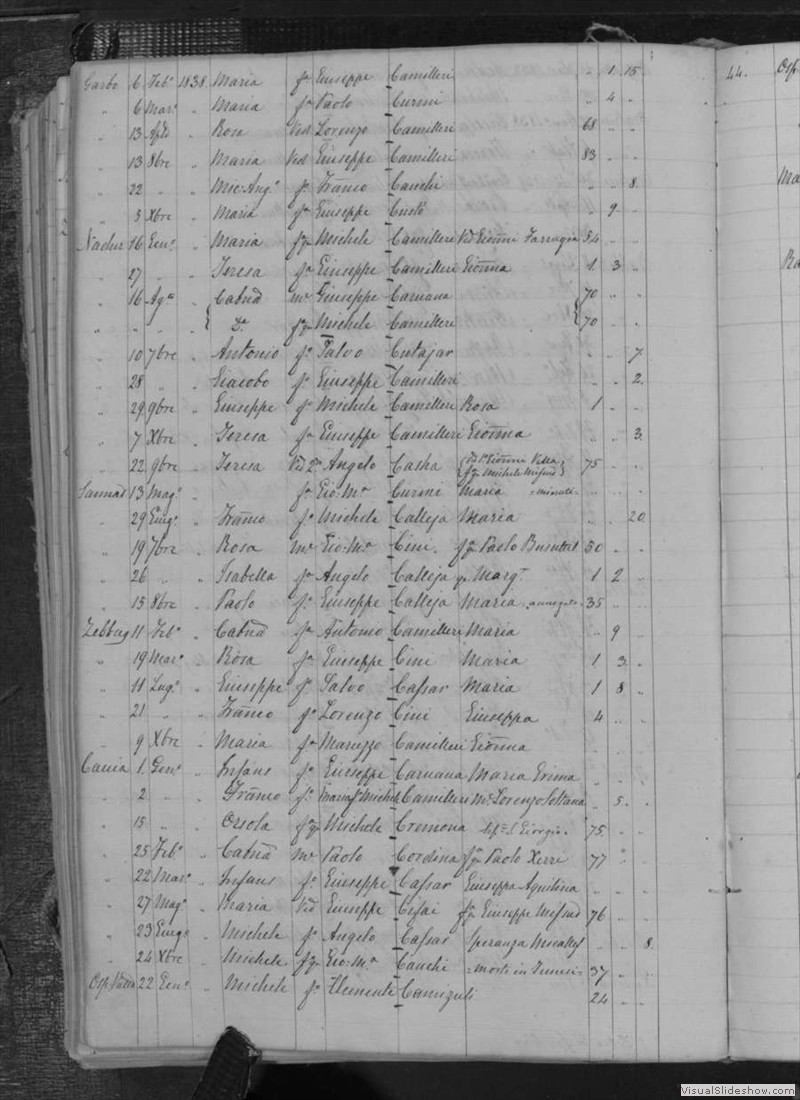 Garbo 6 Feb° 1838 Maria fa Giuseppe Camilleri " 1 15
" 6 Mar° " Maria fa Paolo Curmi " 4 "
" 13 " Rosa Vid Lorenzo Camilleri 68 " "
" 13 8bre " Maria Vid Giuseppe Camilleri 83 " "
" 22 " " Mic: Ang° f° Franco Cauchi " " 8
" 5 Xbre " Maria fa Giuseppe " 9 "
Nadur 16 Gen° " Maria Michele Camilleri Vid Giōnni Farrugia 54 " "
" 27 " " Teresa fa Giuseppe Camilleri Giōnna 1 3 "
" 16 Ag° " Catnā Giuseppe Caruana 70 " "
" " " " Da Michele Camilleri 70 " "
" 10 7bre " Antonio f° Salvo Cutajar " " 7
" 28 " " Giacobo f° Giuseppe Camilleri " " 2
" 29 9bre " Giuseppe f° Michele Camilleri Rosa 1 " "
" 7 Xbre " Teresa fa Giuseppe Camilleri Giōnna " " 3
" 22 9bre " Teresa Vid Angelo Casha Vella Michele 75 " "
Sannat 13 Mag° " Gio: Ma Curmi Maria " " "
" 29 Giug° " Franco f° Michele Calleja Maria " " 20
" 19 7bre " Rosa Gio: Ma Cini Paolo Busuttil 50 " "
" 26 " " Isabella fa Angelo Calleja Marg 1 2 "
" 15 8bre " Paolo f° Giuseppe Calleja Maria annegato 35 " "
Zebbug 11 Feb° " Catnā fa Antonio Camilleri Maria " 9 "
" 19 Mar° " Rosa fa Giuseppe Cini Maria 1 3 "
" 11 Lug° " Giuseppe f° Salvo Cassar Maria 1 8 "
" 21 " " Franco f° Lorenzo Cini Giuseppa 4 " "
" 9 Xbre " Maria fa Camilleri Giōnna " " "
Caccia 1 Gen° " Infans f° Giuseppe Caruana Maria " " "
" 2 " " Franco Michele Camilleri Lorenzo Soltana " 5 "
" 15 " " Orsola Michele Cremona Giorgio 75 " "
" 25 Feb° " Catnā Paolo Cordina Paolo Xerri 77 " "
" 22 Mar° " Infans f° Giuseppe Cassar Giuseppa Aquilina " " "
" 27 Mag° " Maria Vid Giuseppe Giuseppe Mifsud 76 " "
" 23 Giug° " Michele f° Angelo Cassar Speranza Micallef " " 8
" 24 Xbre " Michele Gio: Ma Cauchi morto in Tunesi 37 " "
22 Gen° " Michele f° Clemente Camizuli 24 " "
44.
VisualSlideshow.com